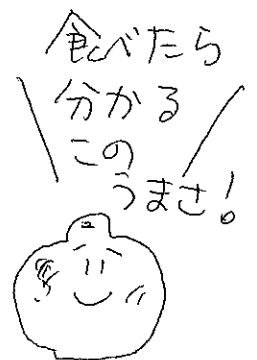 食べたら
分かる
この
うまさ!